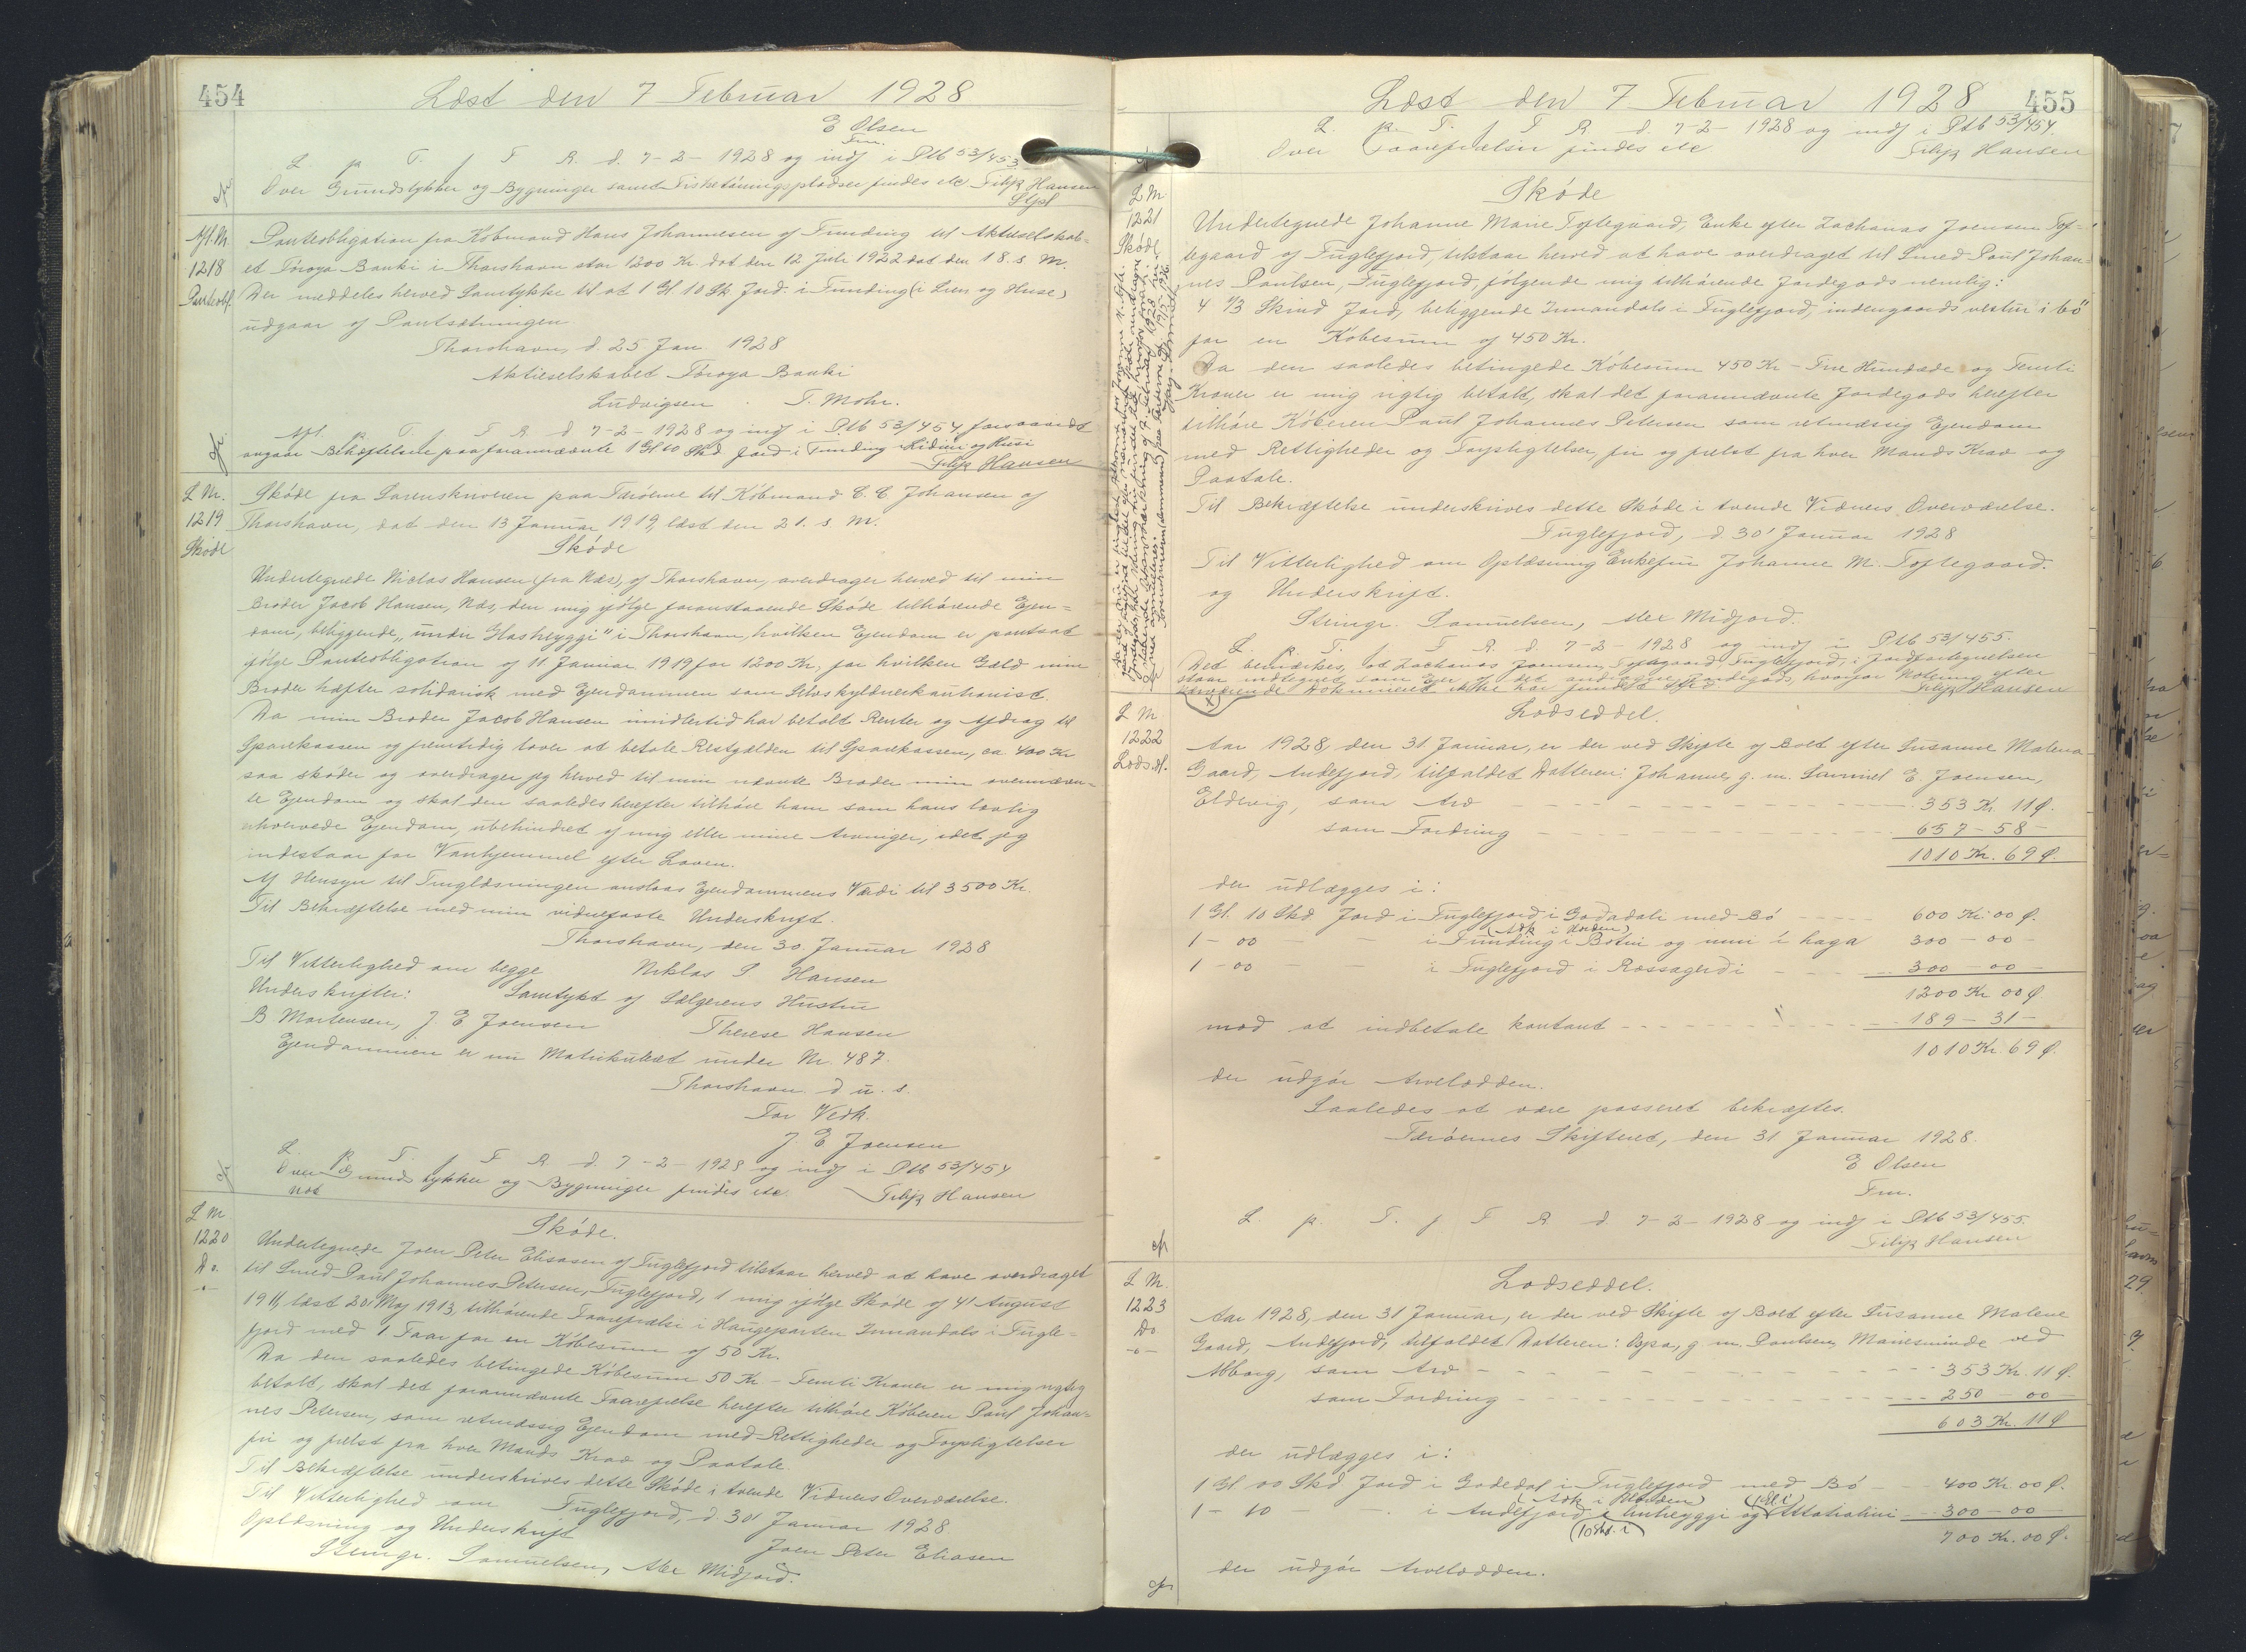 454
Læst den 7 Februar 1928
E Olsen
Fm.
L. p. T. f F. R. d. 7-2-1928 og indf i Ptb 53/453
Over Grundstykker og Bygninger samt Fisketörringspladser findes etc Filip Hansen
Afl. M.
1218
Panteobl.
Panteobligation fra Köbmand Hans Johannesen af Funding til Aktieselskab=
et Föroya Banki i Thorshavn stor 1200 Kr. dat. den 12 Juli 1922 den 18. s. M.
Der meddeles herved Samtykke til at 1 Gl. 10 Sk. Jord i Funding
udgaar af Pantsætningen
Thorshavn, d. 25 Jan. 1928
Aktieselskabet Föroya Banki
Ludvigsen . T. Mohr.
Afl. p. T. f F R d 7-2-1928 og indf i Ptb 53/454 forsaavidt
angaar Behæftelse paa forannævnte 1 Gl 10 Skd Jord i Funding
Filip Hansen
L. M.
1219
Sköde
Sköde fra Sorenskriveren paa Færöerne til Köbmand C. C. Johansen af
Thorshavn, dat den 13 Januar 1919, læst den 21. s. M.
Sköde
Undertegnede Niclas Hansen (fra Næs), af Thorshavn, overdrager herved til min
Broder Jacob Hansen, Næs, den mig ifölge foranstaaende Sköde tilhörende Ejen=
dom, beliggende, "under Glasheyggi" i Thorshavn, hvilken Ejendom er pantsat
ifölge Panteobligation af 11. Januar 1919 for 1200 Kr., for hvilken Gæld min
Broder hæfter solidarisk med Ejendommen som Selvskyldnerkautionist.
Da min Broder Jacob Hansen imidlertid har betalt Renter og Afdrag til
Sparekassen og fremtidig lover at betale Restgælden til Sparekassen, ca 400 Kr
saa sköder og overdrager jeg herved til min nævnte Broder min ovennævn=
te Ejendom og skal den saaledes herefter tilhöre ham som hans lovlig
erhvervede Ejendom, ubehindret af mig eller mine Arvinger, idet jeg
indestaar for Vanhjemmel efter Loven.
Af Hensyn til Tinglæsningen anslaas Ejendommens Værdi til 3500 Kr.
Til Bekræftelse med min vidnefaste Underskrift.
Thorshavn, den 30. Januar 1928
Til Vitterlighed om begge Niklas S Hansen
Underskrifter: Samtykt af Sælgerens Hustru
B Mortensen, J. E Joensen Therese Hansen
Ejendommen er nu Matrikuleret under Nr. 487.
Thorshavn d u. s.
For Vedk.
J. E Joensen
L. p. T. f F R d. 7-2-1928 og indf i Ptb 53/454
Over Grundstykker og Bygninger findes etc. Filip Hansen
L M
1220
Do.
Sköde.
Undertegnede Joen Peter Eliasen af Fuglefjord tilstaar herved at have overdraget
til Smed Paul Johannes Petersen, Fuglefjord, 1 mig ifölge Sköde af 4' August
1911, læst 20' Maj 1913, tilhörende Faarefrælsi i Haugeparten Innandals i Fugle=
fjord med 1 Faar for en Köbesum af 50 Kr.
Da den saaledes betingede Köbesum 50 Kr - Femti Kroner er mig rigtig
betalt, skal det forannævnte Faarefrælse herefter tilhöre Köberen Paul Johan=
nes Petersen, som retmæssig Ejendom med Rettigheder og Forpligtelser
fri og frelst fra hver Mands Krav og Paatale
Til Bekræftelse underskrives dette Sköde i tvende Vidners Overværelse.
Til Vitterlighed om Fuglefjord, d 30' Januar 1928
Oplæsning og Underskrift Joen Peter Eliasen
Steingr. Samuelsen, Alex Midjord.
455
Læst den 7. Februar 1928
L. p. T. f F R. d. 7-2-1928 og indf i Ptb 53/454.
Over Faarefrælsir findes etc Filip Hansen
L M
1221
Sköde
Sköde
Undertegnede Johanne Marie Toftegaard, Enke efter Zacharias Joensen Tof=
tegaard af Fuglefjord, tilstaar herved at have overdraget til Smed Paul Johan=
nes Poulsen, Fuglefjord, fölgende mig tilhörende Jordegods nemlig:
4 1/3 Skind Jord, beliggende Innandals i Fuglefjord, indengaards vestur i bö
for en Köbesum af 450 Kr.
Da den saaledes betingede Köbesum 450 Kr - Fire Hundrede og Femti
Kroner er mig rigtig betalt, skal det forannævnte Jordegods herefter
tilhöre Köberen Paul Johannes Petersen som retmæssig Ejendom
med Rettigheder og Forpligtelser, fri og frelst fra hver Mands Krav og
Paatale.
Til Bekræftelse underskrives dette Sköde i tvende Vidners Overværelse.
Fuglefjord, d 30' Januar 1928
Til Vitterlighed om Oplæsning Enkefru Johanne M. Toftegaard.
og Underskrift.
Steingr. Samuelsen, Alex Midjord.
L. p. T. f F R. d. 7-2-1928 og indf i Ptb 53/455.
Det bemærkes, at Zacharias Joensen Toftegaard, Fuglefjord, i Jordfortegnelsen
staar indtegnet som Ejer af det Jordegods, hvorfor Notering efter
nærværende Dokument ikke har fundet Sted Filip Hansen
L M.
1222
Lods.d.
Lodseddel.
Aar 1928, den 31. Januar, er der ved Skifte af Boet efter Susanne Malena
Gaard, Andefjord, tilfaldet Datteren: Johanne, g. m. Samuel E. Joensen,
Eldevig, som Arv - - - 353 Kr. 11 Ø.
som Fordring - - - 657 - 58 -
1010 Kr. 69 Ø.
der udlægges i:
1 Gl. 10 Skd Jord i Fuglefjord i Godadali med Bö - - - 600 Kr. 00 Ø.
1 - 00 - - i Funding i Botni og inni i haga 300 - 00 -
1 - 00 - - i Fuglefjord i Ræssagerdi - - - 300 - 00 -
1200 Kr 00 Ø
mod at indbetale kontant - - - 189 - 31 -
1010 Kr. 69 Ø.
der udgör Arvelodden.
Saaledes at være passeret bekræftes.
Færöernes Skifteret, den 31 Januar 1928.
E Olsen
Fm.
L p. T. f F R d. 7-2-1928 og indf i Ptb 53/455.
Filip Hansen
L M.
1223
Do.
Lodseddel.
Aar 1928, den 31 Januar, er der ved Skifte af Boet efter Susanne Malene
Gaard, Andefjord, tilfaldet Datteren: Ospa, g m. Poulsen, Mariesminde ved
Aalborg, som Arv - - - 353 Kr. 11 Ø.
som Fordring - - - 250 - 00 -
603 Kr. 11 Ø
der udlægges i:
1 Gl 00 Skd Jord i Godedal i Fuglefjord med Bö - - 400 Kr 00 Ø.
1 - 10 - - i Andefjord - - - 300 - 00 -
700 Kr. 00 Ø.
der udgör Arvelodden.